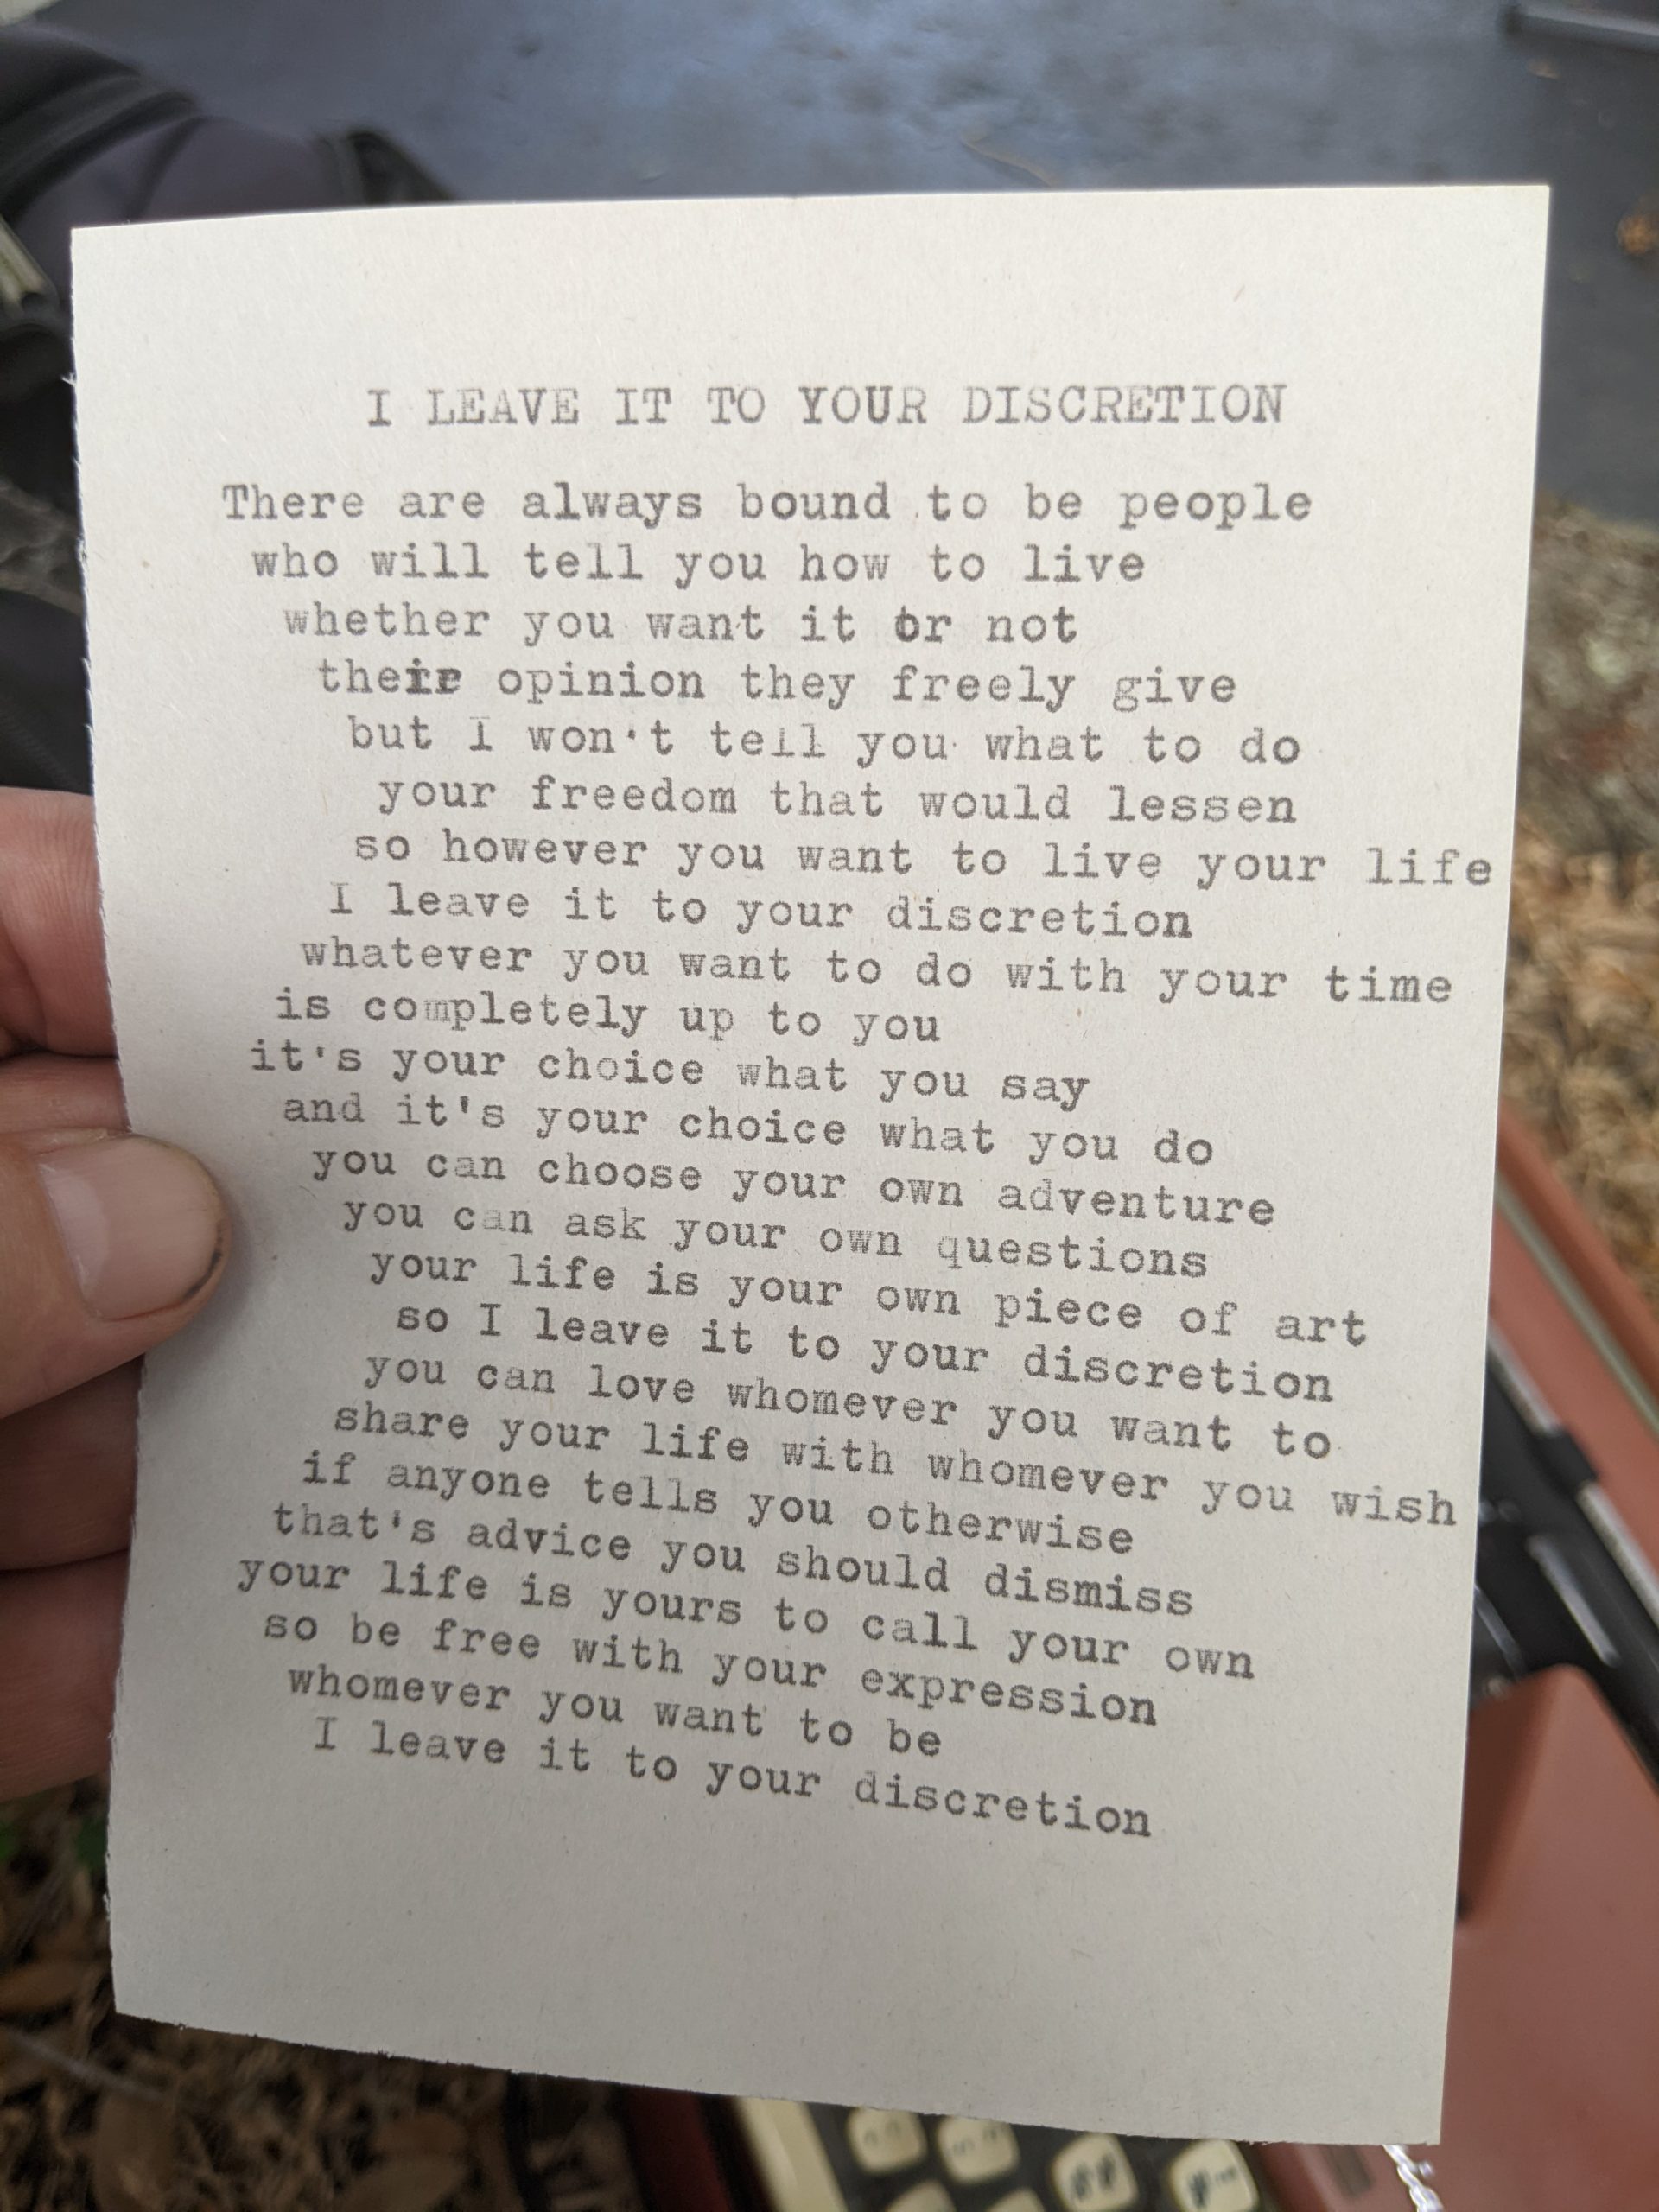 I LEAVE IT TO YOUR DISCRETION
There are always bound to be people
who will tell you how to live
whether you want it or not
their opinion they freely give
but I won't tell you what to do
your freedom that would lessen
so however you want to live your life
I leave it to your discretion
whatever you want to do with your time
is completely up to you
it's your choice what you say
and it's your choice what you do
you can choose your own adventure
you can ask your own questions
your life is your own piece of art
so I leave it to your discretion
you can love whomever you want to
share your life with whomever you wish
if anyone tells you otherwise
that's advice you should dismiss
your life is yours to call your own
so be free with your expression
whomever you want to be
I leave it to your discretion